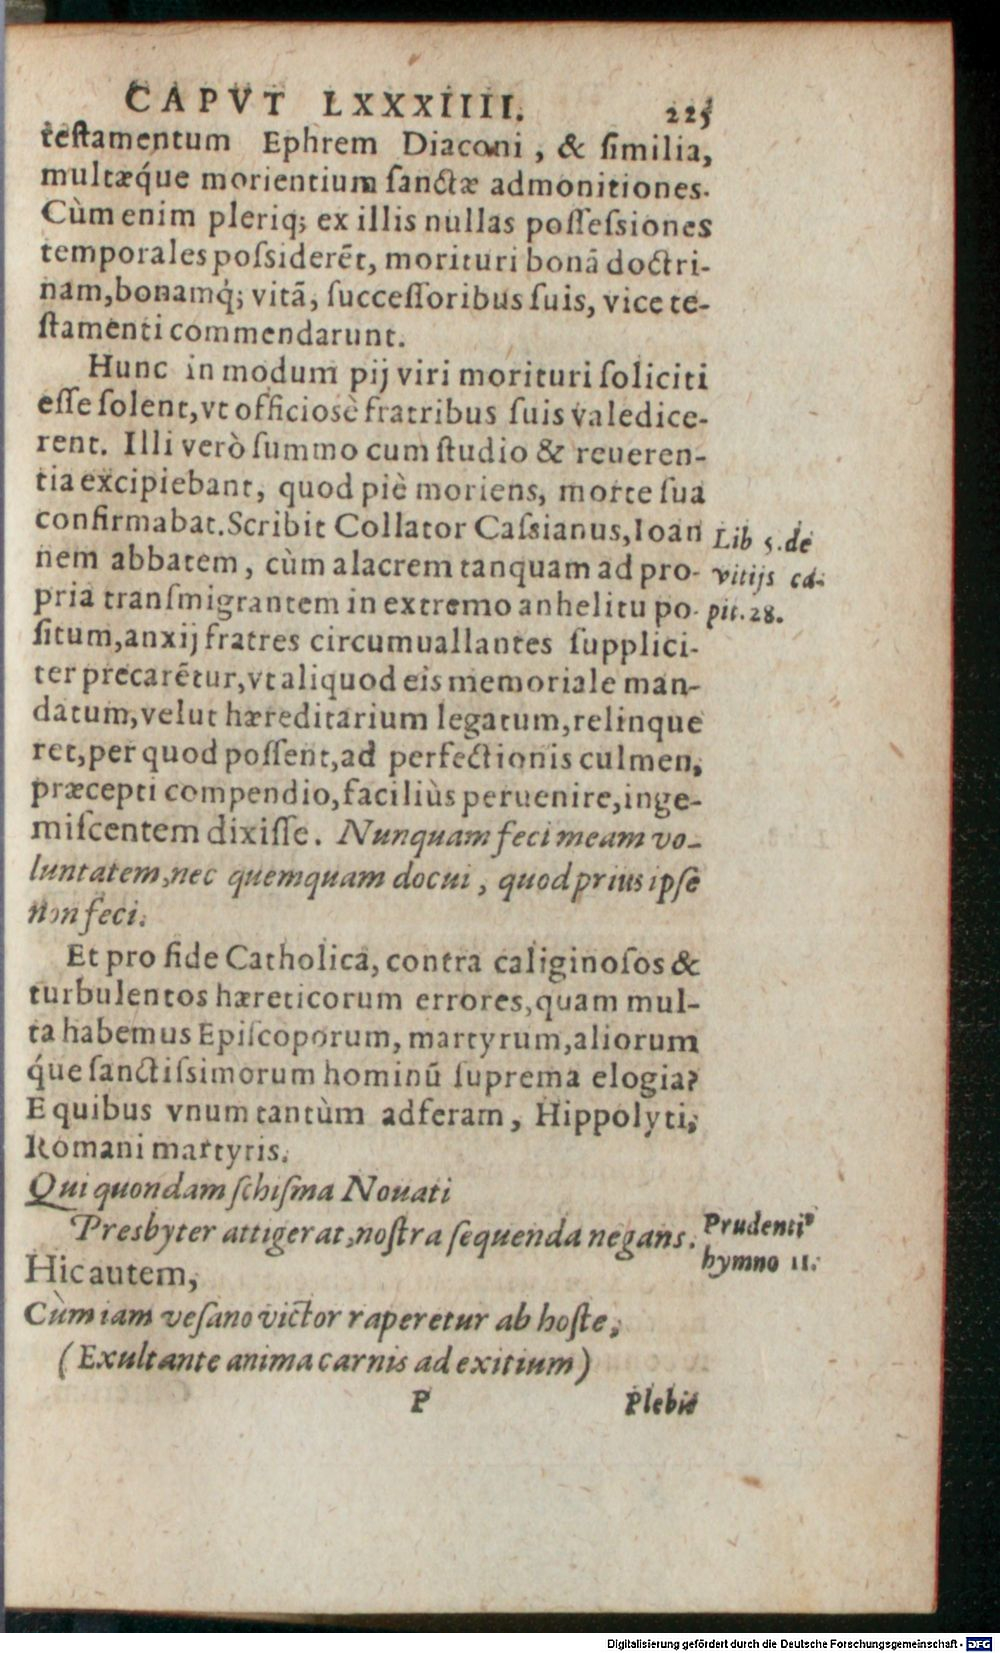 CAPVT LXXXIIII. 225
testamentum Ephrem Diaconi, & similia,
multæq́ue morientium sanctæ admonitiones.
Cùm enim pleriq; ex illis nullas possessiones
temporales possiderẽt, morituri bonã doctri-
nam, bonamq́; vitã, successoribus suis, vice te-
stamenti commendarunt.
Hunc in modum pij viri morituri soliciti
esse solent, vt officiosè fratribus suis valedice-
rent. Illi verò summo cum studio & reueren-
tia excipiebant, quod piè moriens, morte sua
confirmabat. Scribit Collator Cassianus, Ioan
nem abbatem, cùm alacrem tanquam ad pro-
pria transmigrantem in extremo anhelitu po-
situm, anxij fratres circumuallantes supplici-
ter precarẽtur, vt aliquod eis memoriale man-
datum, velut hæreditarium legatum, relinque
ret, per quod possent, ad perfectionis culmen,
præcepti compendio, faciliùs peruenire, inge-
miscentem dixisse. Nunquam feci meam vo-
luntatem, nec quemquam docui, quod prius ipse
non feci.
Lib 5. de
vitijs ca-
pit. 28.
Et pro fide Catholica, contra caliginosos &
turbulentos hæreticorum errores, quam mul-
ta habemus Episcoporum, martyrum, aliorum
q́ue sanctissimorum hominũ suprema elogia?
E quibus vnum tantùm adferam, Hippolyti,
Romani martyris.
Qui quondam schisma Nouati
Presbyter attigerat, nostra sequenda negans.
Prudentiꝰ
hymno 11.
Hic autem,
Cùm iam vesano victor raperetur ab hoste,
(Exultante anima carnis ad exitium)
P Plebis
Digitalisierung gefördert durch die Deutsche Forschungsgemeinschaft - DFG